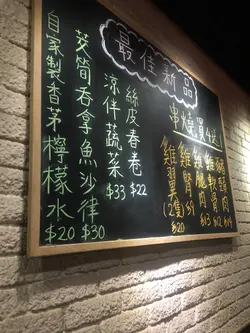 最佳新品
串燒買4送1
雞軟骨
雞腿肉
雞腎 $9
雞翼 (2隻) $20
絲皮春卷 $22
涼伴蔬菜 $33
茭筍吞拿魚沙律 $30
自家製香茅檸檬水 $20